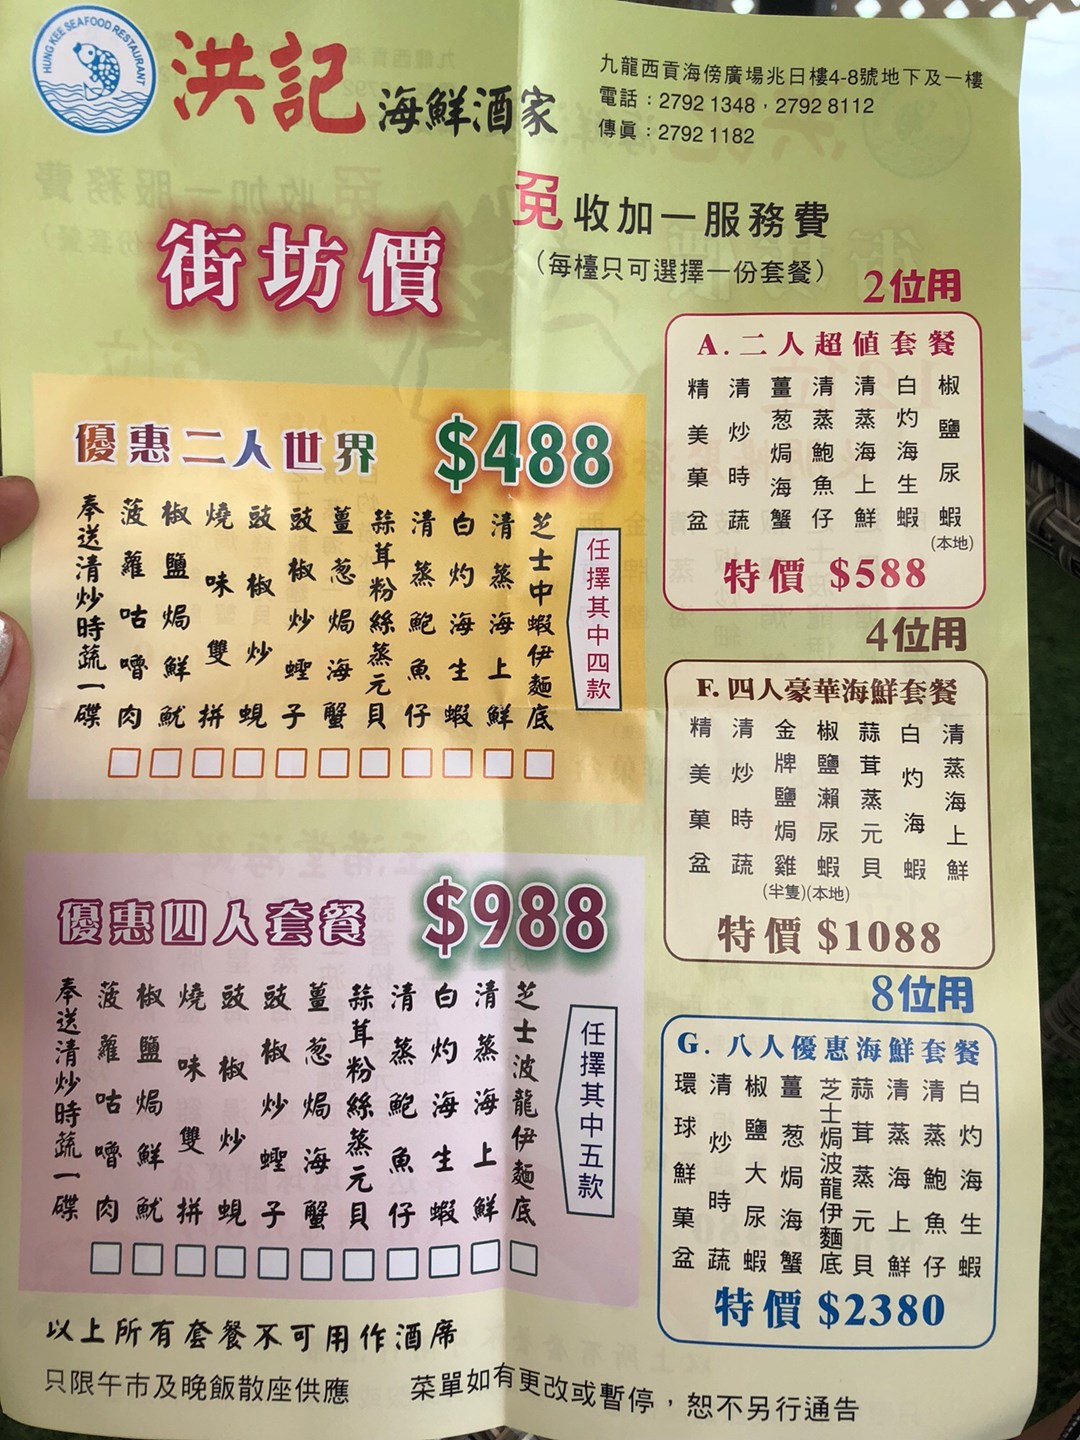 HUNG KEE SEAFOOD RESTAURANT
洪記海鮮酒家
九龍西貢海傍廣場兆日樓4-8號地下及一樓
電話：2792 1348，2792 8112
傳真：2792 1182
街坊價
免收加一服務費
（每檯只可選擇一份套餐）
優惠二人世界 $488
任擇其中四款
芝士中蝦伊麵底
清蒸海上鮮
白灼海生蝦
清蒸鮑魚仔
蒜茸粉絲蒸元貝
薑蔥焗海蟹
豉椒炒蟶子
豉椒炒蜆
燒味雙拼
椒鹽焗鮮魷
菠蘿咕嚕肉
奉送清炒時蔬一碟
優惠四人套餐 $988
任擇其中五款
芝士波龍伊麵底
清蒸海上鮮
白灼海生蝦
清蒸鮑魚仔
蒜茸粉絲蒸元貝
薑蔥焗海蟹
豉椒炒蟶子
豉椒炒蜆
燒味雙拼
椒鹽焗鮮魷
菠蘿咕嚕肉
奉送清炒時蔬一碟
2位用
A. 二人超值套餐
椒鹽尿蝦(本地)
白灼海生蝦
清蒸海上鮮
清蒸鮑魚仔
薑葱焗海蟹
清炒時蔬
精美菓盆
特價 $588
4位用
F. 四人豪華海鮮套餐
清蒸海上鮮
白灼海蝦
蒜茸蒸元貝
椒鹽瀨尿蝦(本地)
金牌鹽焗雞(半隻)
清炒時蔬
精美菓盆
特價 $1088
8位用
G. 八人優惠海鮮套餐
白灼海生蝦
清蒸鮑魚仔
清蒸海上鮮
蒜茸蒸元貝
芝士焗波龍伊麵底
薑葱焗海蟹
椒鹽大尿蝦
清炒時蔬
環球鮮菓盆
特價 $2380
以上所有套餐不可用作酒席
只限午市及晚飯散座供應
菜單如有更改或暫停，恕不另行通告